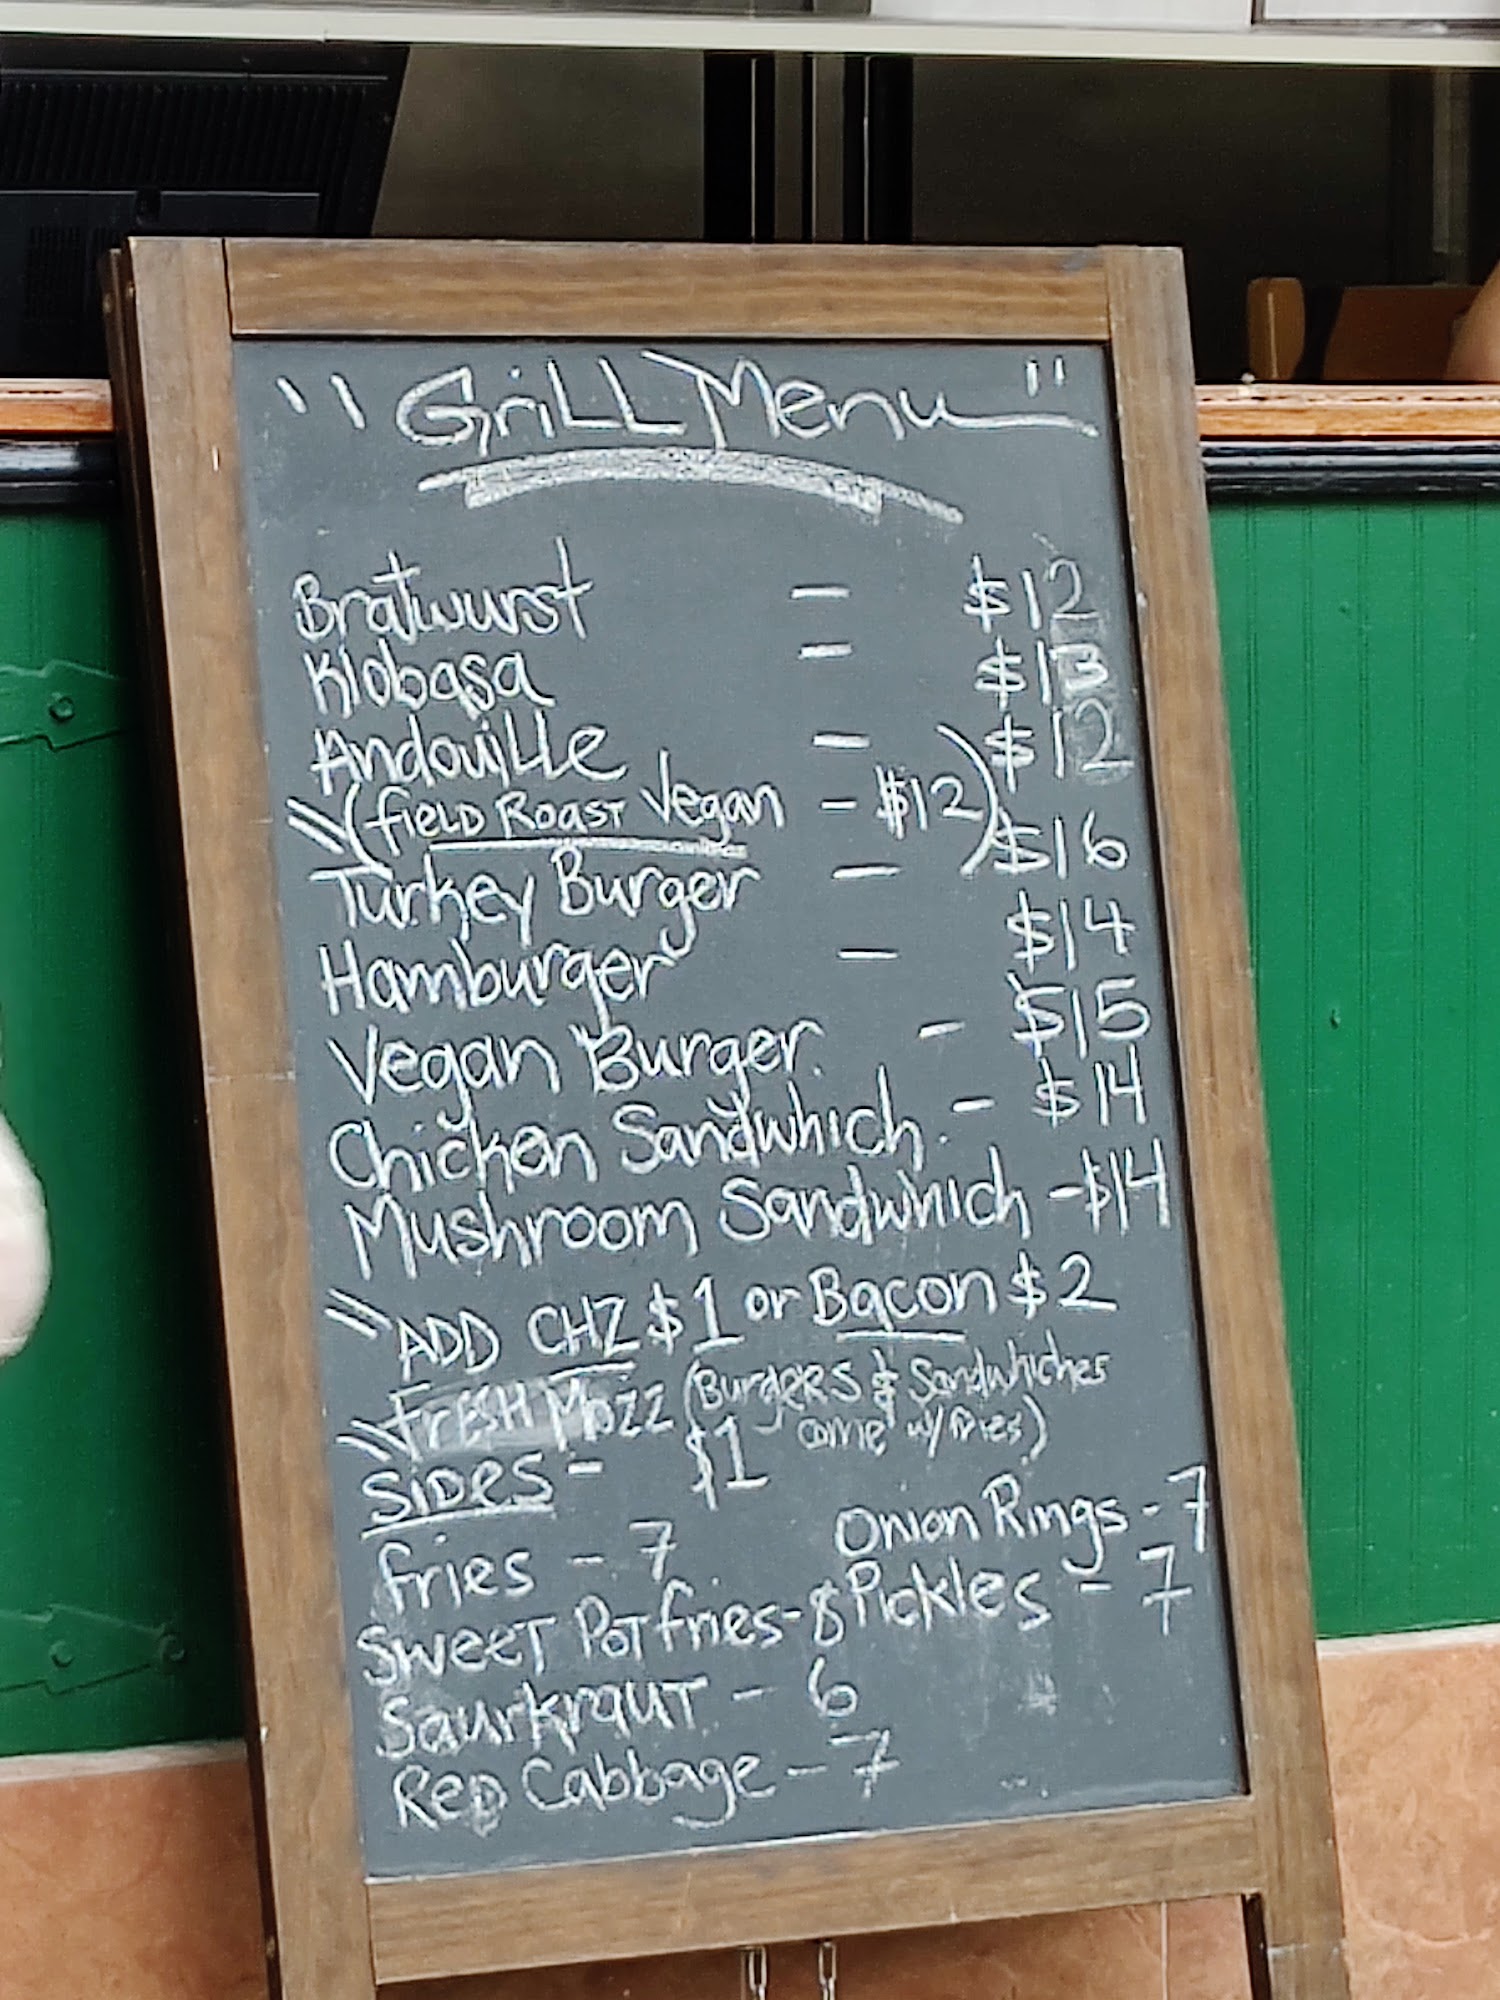 "Grill Menu"
Bratwurst - $12
Klobasa - $13
Andouille - $12
(Field Roast Vegan - $12)
Turkey Burger - $16
Hamburger - $14
Vegan Burger. - $15
Chicken Sandwhich. - $14
Mushroom Sandwhich - $14
ADD CHZ $1 or Bacon $2
FRESH Mozz $1 (Burgers & Sandwhiches
come w/ fries)
SIDES -
Fries - 7
Onion Rings - 7
Sweet Pot fries - 8
Pickles - 7
Saurkraut - 6
Red Cabbage - 7